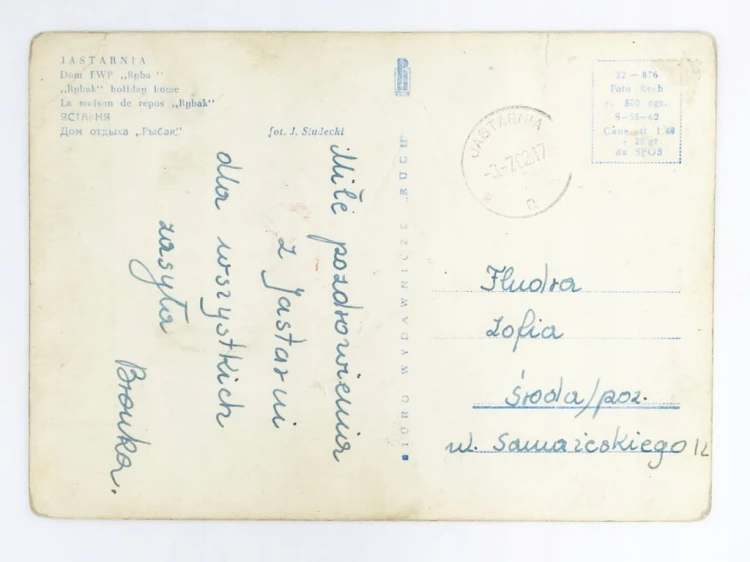 JASTARNIA
Dom FWP „Ryba"
„Rybak" holiday home
La maison de repos „Rybak"
ЯСТАРНЯ
Дом отдыха „Рыбак"
fot. J. Siudecki
Miłe pozdrowienia
z Jastarni
dla wszystkich
zasyła
Bronka.
BIURO WYDAWNICZE RUCH
JASTARNIA
-3-7
a
22 - 876
Foto - Ruch
r. 500 egz.
S-56-62
Cena zł 1'40
+ 20 gr
na SFOS
Fludra
Zofia
Środa/poz.
ul. 12